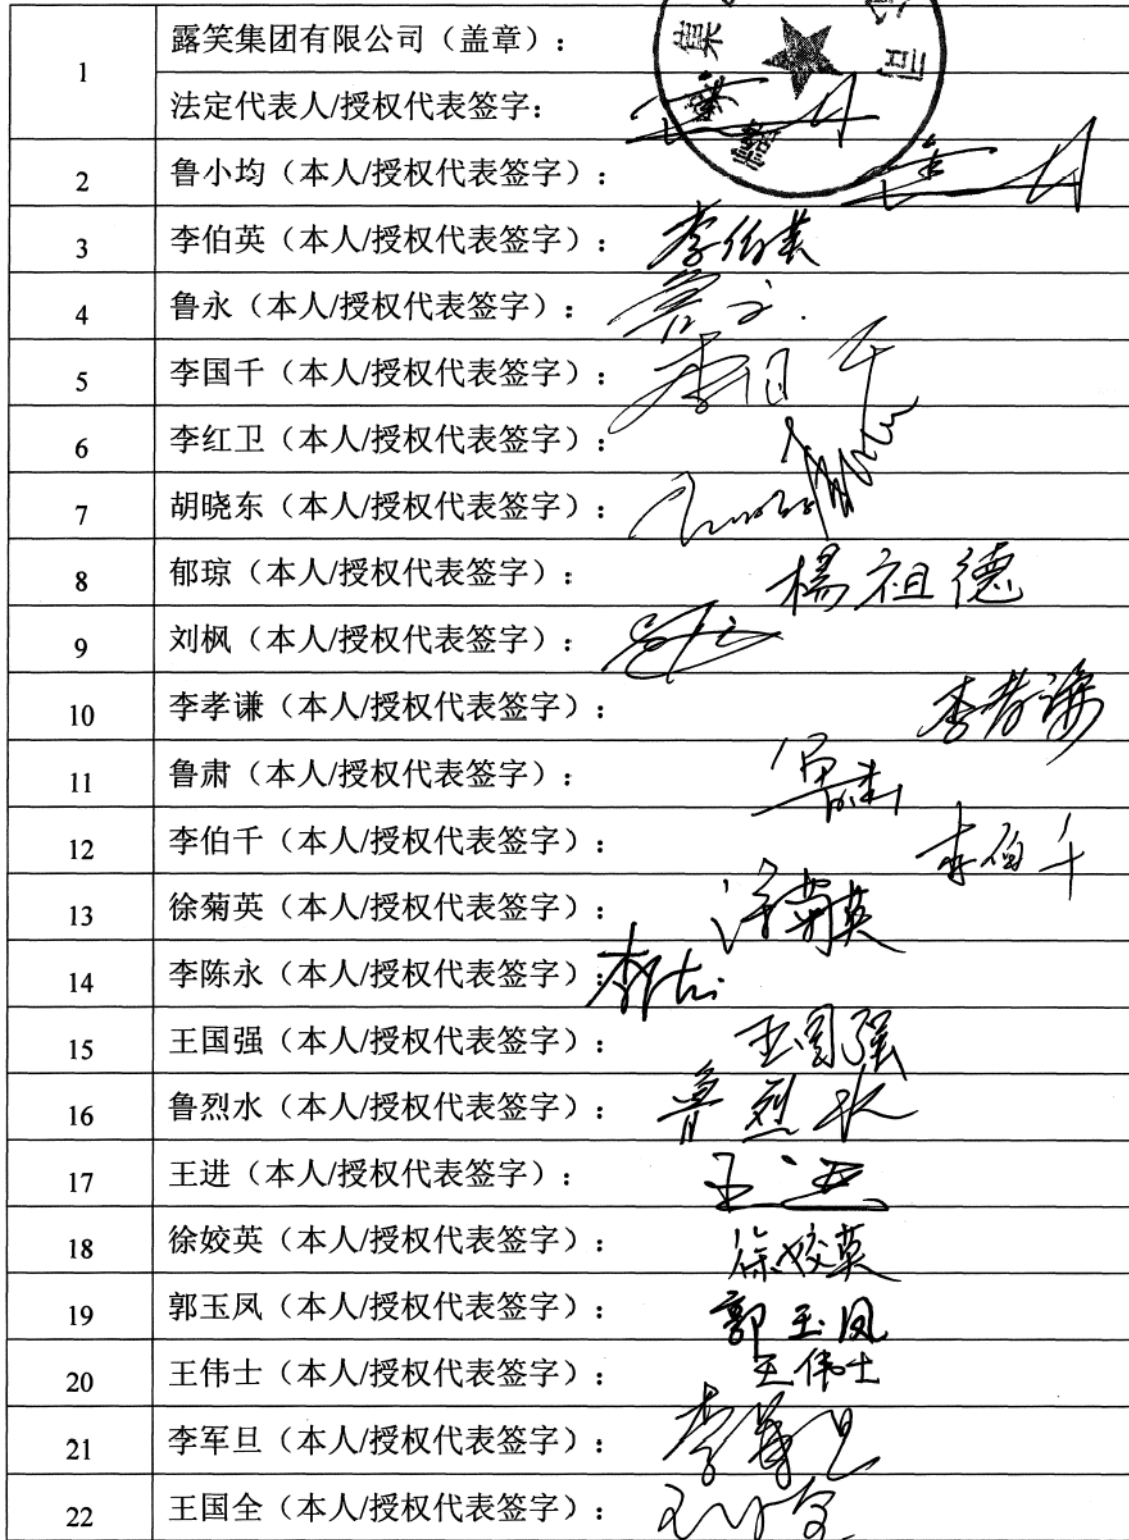 1
露笑集团有限公司（盖章）：
法定代表人/授权代表签字：
2 鲁小均（本人/授权代表签字）：
3 李伯英（本人/授权代表签字）： 李伯英
4 鲁永（本人/授权代表签字）： 鲁永
5 李国千（本人/授权代表签字）： 李国千
6 李红卫（本人/授权代表签字）：
7 胡晓东（本人/授权代表签字）：
8 郁琼（本人/授权代表签字）： 楊祖德
9 刘枫（本人/授权代表签字）：
10 李孝谦（本人/授权代表签字）： 李孝谦
11 鲁肃（本人/授权代表签字）：
12 李伯千（本人/授权代表签字）： 李伯千
13 徐菊英（本人/授权代表签字）： 徐菊英
14 李陈永（本人/授权代表签字）：
15 王国强（本人/授权代表签字）： 王国强
16 鲁烈水（本人/授权代表签字）： 鲁烈水
17 王进（本人/授权代表签字）： 王进
18 徐姣英（本人/授权代表签字）： 徐姣英
19 郭玉凤（本人/授权代表签字）： 郭玉凤
20 王伟士（本人/授权代表签字）： 王伟士
21 李军旦（本人/授权代表签字）： 李军旦
22 王国全（本人/授权代表签字）：